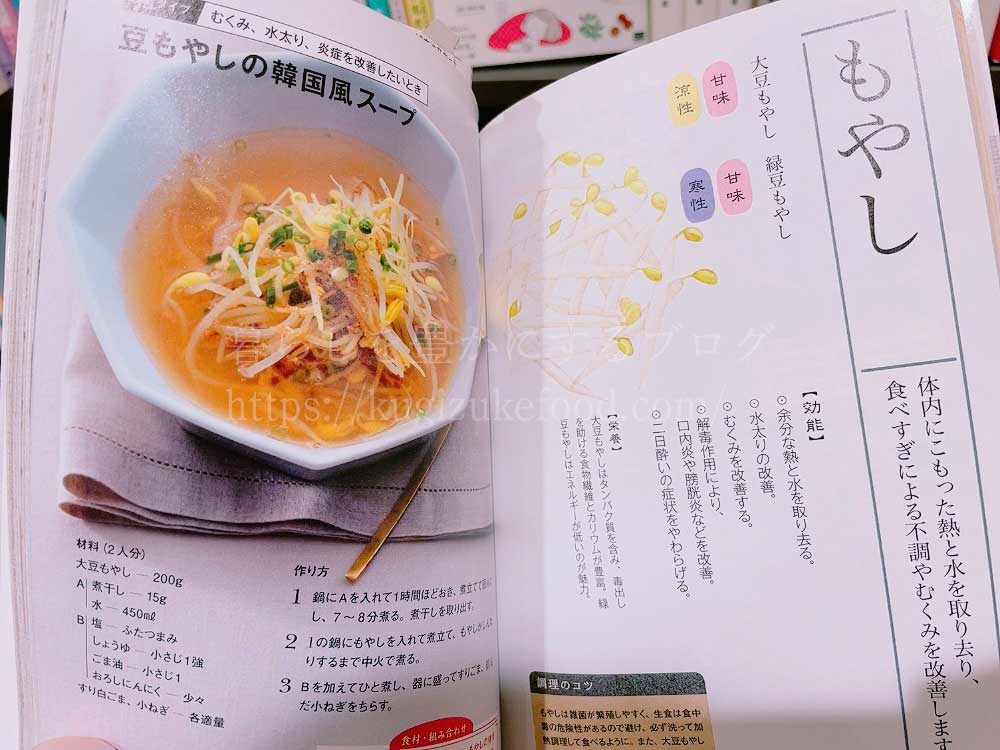 むくみ、水太り、炎症を改善したいとき
豆もやしの韓国風スープ
材料（2人分）
大豆もやし ― 200g
A 煮干し ― 15g
水 ― 450㎖
B 塩 ― ふたつまみ
しょうゆ ― 小さじ1強
ごま油 ― 小さじ1
おろしにんにく ― 少々
すり白ごま、小ねぎ ― 各適量
作り方
1 鍋にAを入れて1時間ほどおき、煮立てて
し、7〜8分煮る。煮干しを取り出す。
2 1の鍋にもやしを入れて煮立て、もやしが
りするまで中火で煮る。
3 Bを加えてひと煮し、器に盛ってすりごま、
だ小ねぎをちらす。
食材・組み合わせ
もやし
体内にこもった熱と水を取り去り、
食べすぎによる不調やむくみを改善します
大豆もやし
甘味
涼性
緑豆もやし
甘味
寒性
【効能】
⊙余分な熱と水を取り去る。
⊙水太りの改善。
⊙むくみを改善する。
⊙解毒作用により、
口内炎や膀胱炎などを改善。
⊙二日酔いの症状をやわらげる。
【栄養】
大豆もやしはタンパク質を含み、毒出し
を助ける食物繊維とカリウムが豊富。緑
豆もやしはエネルギーが低いのが魅力。
調理のコツ
もやしは雑菌が繁殖しやすく、生食は食中
毒の危険性があるので避け、必ず洗って加
熱調理して食べるように。また、大豆もやし
暮らしを豊かにするブログ
https://kugizukefood.com/